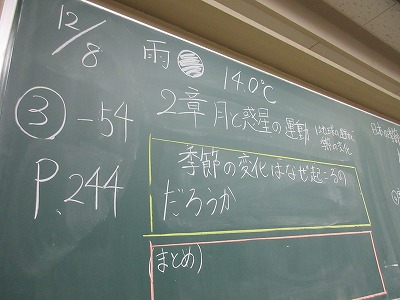 12/8
雨 14.0℃
③-54
P.244
2章 月と惑星の運動
季節の変化はなぜ起こるの
だろうか
まとめ)
日本の